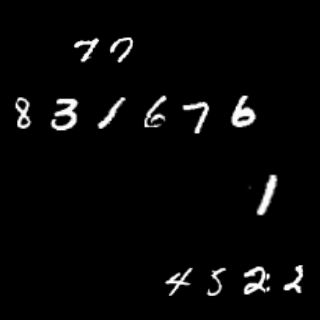 77
831676
1
4522